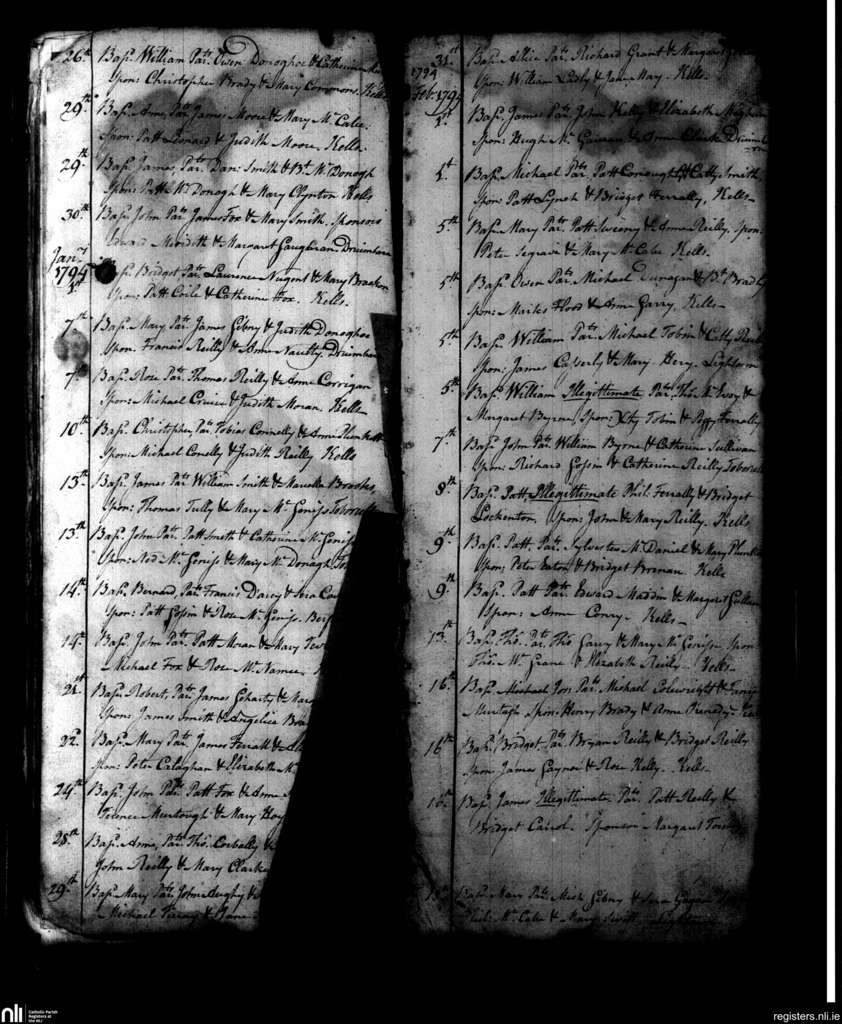 26th Bap. William Par. Owen Donoghoe & Catherine
Spon: Christopher Brady & Mary Commons. Kells
29th Bap. Anne, Par. James Moore & Mary Mc Cabe.
Spon: Patt Leonard & Judith Moore. Kells.
29th Bap. James, Par. Dan: Smith & Bt. Mc Donogh
Spon: Patt Mc Donagh & Mary Clynton Kells
30th Bap. John Par. James Fox & Mary Smith. Sponsors
Edward Merideth & Margaret Gaughran. Druimbara
Jan.ry
1794 Bap. Bridget Par. Laurence Nugent & Mary Bracken
Spon: Patt Coile & Catherine Fox. Kells.
7th Bap. Mary Par. James Gibny & Judith Donoghoe
Spon. Francis Reilly & Ann Naulty. Druimbara
7th Bap. Rose Par. Thomas Reilly & Anne Corrigan
Spon: Michael Cruice & Judith Moran. Kells
10th Bap. Christopher, Par. Tobias Connelly & Anne Plunkett
Spon: Michael Conelly & Judith Reilly Kells
13th Bap. James Par. William Smith & Brookes,
Spon: Thomas Tully & Mary Mc Geniss
13th Bap. John Par. Patt Smith & Catherine Mc
Spon: Ned Mc Geniss & Mary Mc Donagh
14th Bap. Bernard, Par. Francis Darcy &
Spon: Patt Gossin & Rose Mc Geniss.
14th Bap. John Par. Patt Moran & Mary
Michael Fox & Rose Mc Namee,
21st Bap. Robert, Par. James Geharty &
Spon: James Smith & Angelice
22. Bap. Mary Par. James Ferrall &
Spon: Peter Calaghan & Elizabeth
24th Bap. John Par. Patt Fox & Anne
Terence Murtough & Mary
28th Bap. Anne, Par. Thos. Corbally &
John Reilly & Mary Clarke
29th Bap. Mary Par. John &
Michael &
31st Bap. Alice Par. Richard Grant & Margaret
Spon: William & Jane May. Kells.
1794
Feb. 1794
1st Bap. James Par. John Kelly & Elizabeth
Spon: Hugh Mc & Anne Clarke
1st Bap. Michael Par. Patt Conaughty & Catty Smith
Spon: Patt Lynch & Bridget Ferrally, Kells
5th Bap. Mary Par. Patt Sweeny & Anne Reilly, Spon.
Peter Segrave & Mary Mc Cabe Kells.
5th Bap. Owen Par. Michael Dunagan & Bt. Brady
Spon: Marks Flood & Ann Garry. Kells
5th Bap. William Par. Michael Tobin & Catty
Spon: James Casserly & Mary
5th Bap. William Illegittimate Par. Thos. Mc Evoy &
Margaret Byrne, Spon: Xty Tobin & Peggy Ferrally
7th Bap. John Par. William Byrne & Catherine Sullivan
Spon: Richard Gossin & Catherine Reilly
8th Bap. Patt Illegittimate Phil. Ferrally & Bridget
Lockenton, Spon: John & Mary Reilly. Kells
9th Bap. Patt. Par. Sylvester Mc Daniel & Mary
Spon: Peter Eaton & Bridget Brenan. Kells
9th Bap. Patt Par. Edward Maddin & Margaret
Spon: Anne Conry. Kells
13th Bap. Thos. Par. Thos. Garry & Mary Mc Geniss Spon:
Thos. Mc Grane & Elizabeth Reilly. Kells.
16th Bap. Michael Jos: Par. Michael &
Murtagh Spon: Henry Brady & Anne
16th Bap. Bridget Par. Bryan Reilly & Bridget Reilly
Spon: James Gaynor & Rose Kelly. Kells.
16th Bap. James Illegittimate Par. Patt Reilly &
Bridget Carrol. Sponsor Margaret
Bap. Mary Par. Mich. Gibny &
Phil: Mc Cabe & Mary
nli Catholic Parish
Registers at
the NLI
registers.nli.ie